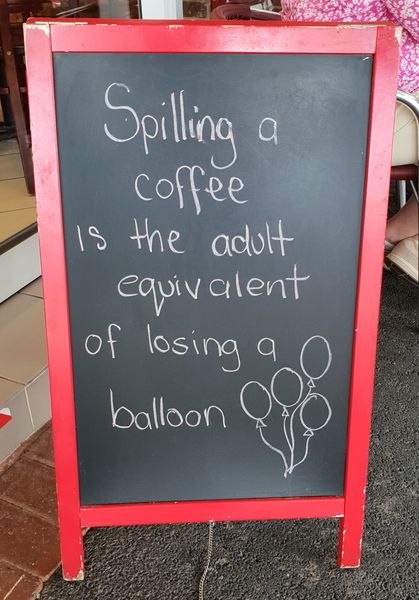 Spilling a
coffee
is the adult
equivalent
of losing a
balloon